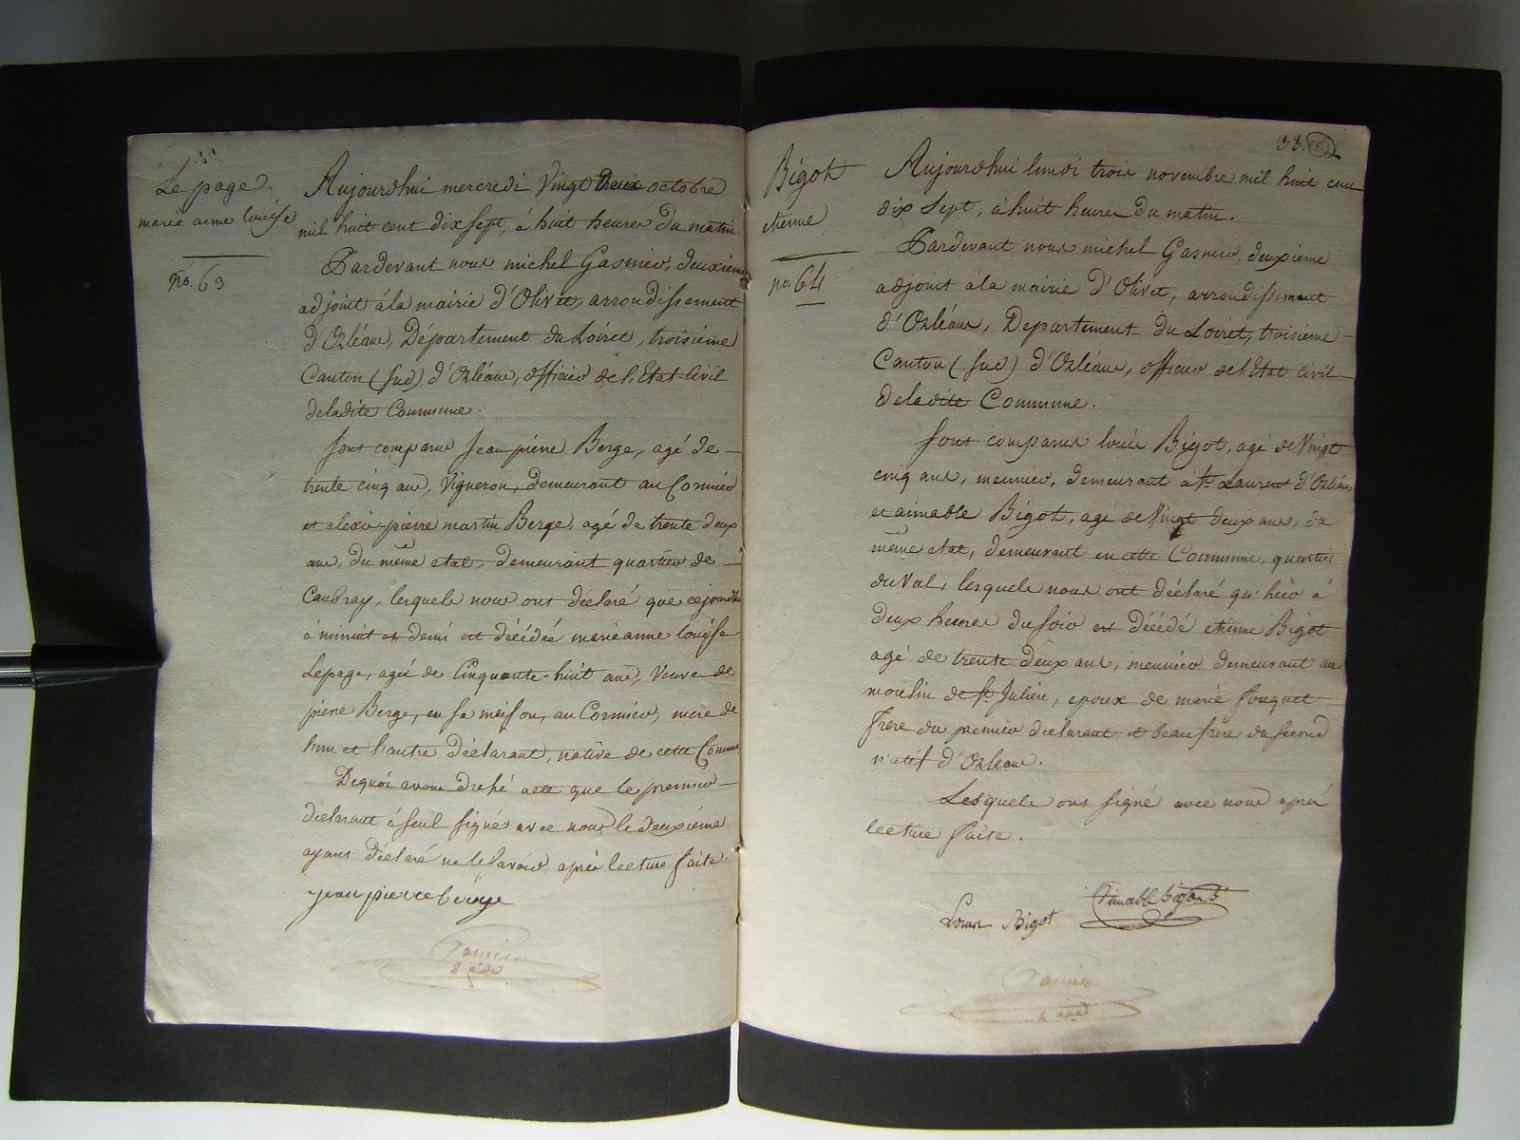 Le page
marie anne louise
no. 63
Aujourdhui mercredi Vingt deux octobre
mil huit cent dix sept, à huit heures du matin.
Pardevant nous michel Gasnier, deuxieme
adjoint à la mairie d'Olivet, arrondissement
d'Orléans, Département du Loiret, troisieme
Canton (sud) d'Orléans, officier de l'Etat Civil
de ladite Commune.
sont comparus Jean pierre Berge, agé de
trente cinq ans, Vigneron, demeurant au Cormier
et alexis pierre martin Berge, agé de trente deux
ans, du même etat, demeurant quartier de
Caubray, lesquels nous ont déclaré que cejourdhui
à minuit et demi est décédée marie anne louise
Lepage, agée de Cinquante huit ans, Veuve de
pierre Berge, en sa maison, au Cormier, mere de
l'un et l'autre déclarant, native de cette Commune
Dequoi avons dressé acte que le premier
déclarant à seul signé avec nous le deuxieme
ayant déclaré ne le savoir après lecture faite.
jean pierre berge
Gasnier
33.
Bigot
etienne
no. 64
Aujourdhui lundi trois novembre mil huit cent
dix sept, à huit heures du matin.
Pardevant nous michel Gasnier, deuxieme
adjoint à la mairie d'Olivet, arrondissement
d'Orléans, Departement du Loiret, troisieme
Canton (sud) d'Orléans, officier de l'Etat Civil
de ladite Commune.
sont comparus louis Bigot, agé de Vingt
cinq ans, meunier, demeurant à St. Laurent d'Orléans
et aimable Bigot, agé de Vingt deux ans, du
même etat, demeurant en cette Commune, quartier
du Val, lesquels nous ont déclaré qu'hier à
deux heures du soir est décédé etienne Bigot
agé de trente deux ans, meunier demeurant au
moulin de St. Julien, epoux de marie fouquet
frere du premier déclarant et beau frere du second
natif d'Orléans.
Lesquels ont signé avec nous après
lecture faite.
Louis Bigot
Aimable bigot
Gasnier